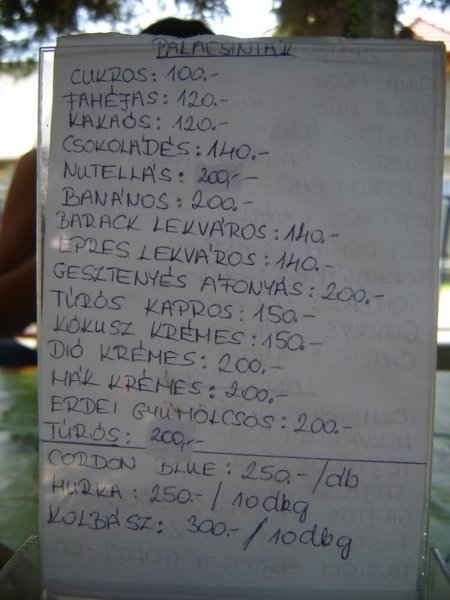 PALACSINTÁK
CUKROS: 100.-
FAHÉJAS: 120.-
KAKAÓS: 120.-
CSOKOLÁDÉS: 140.-
NUTELLÁS: 200,-
BANÁNOS: 200.-
BARACK LEKVÁROS: 140.-
EPRES LEKVÁROS: 140.-
GESZTENYÉS ÁFONYÁS: 200.-
TÚRÓS KAPROS: 150.-
KÓKUSZ KRÉMES: 150.-
DIÓ KRÉMES: 200.-
MÁK KRÉMES: 200.-
ERDEI GYÜMÖLCSÖS: 200.-
TÚRÓS: 200,-
CORDON BLUE: 250.-/db
HURKA: 250.-/10dkg
KOLBÁSZ: 300.-/10dkg